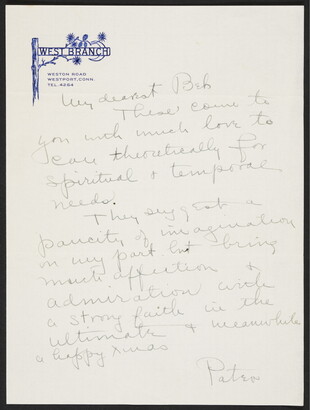 WEST BRANCH
WESTON ROAD
WESTPORT, CONN.
TEL. 4264
My dearest Beb
These come to
you with much love to
care theoretically for
spiritual & temporal
needs.
They suggest a
paucity of imagination
on my part but bring
much affection &
admiration with
a strong faith in the
ultimate & meanwhile
a happy Xmas
Pater